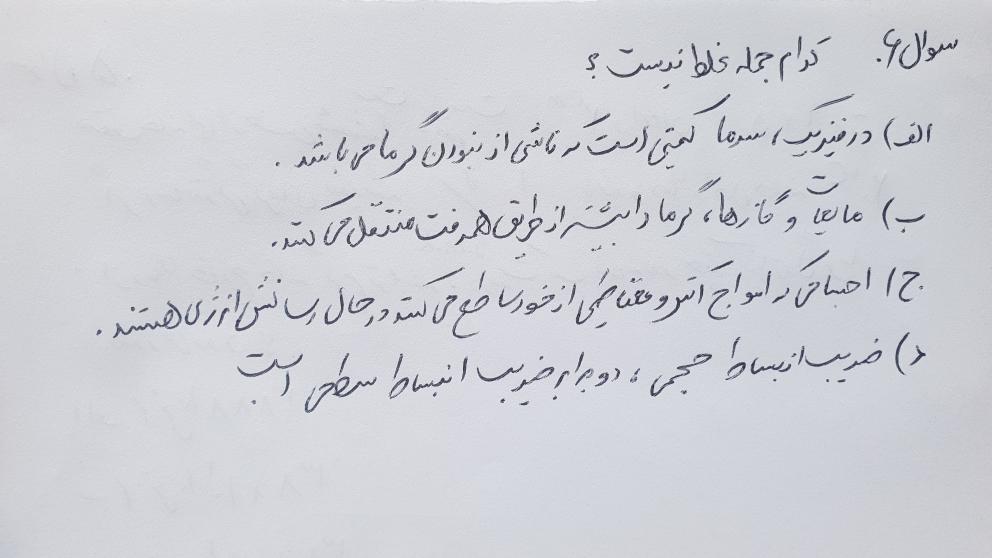 سوال ۶. کدام جمله غلط نیست ؟
الف) در فیزیک، سرما کمیتی است که ناشی از نبودن گرما می باشد .
ب) مایعات و گازها، گرما را بیشتر از طریق همرفت منتقل می کنند.
ج) اجسامی که امواج الکترومغناطیسی از خود ساطع می کنند در حال رسانش انرژی هستند .
د) ضریب انبساط حجمی ، دو برابر ضریب انبساط سطحی است